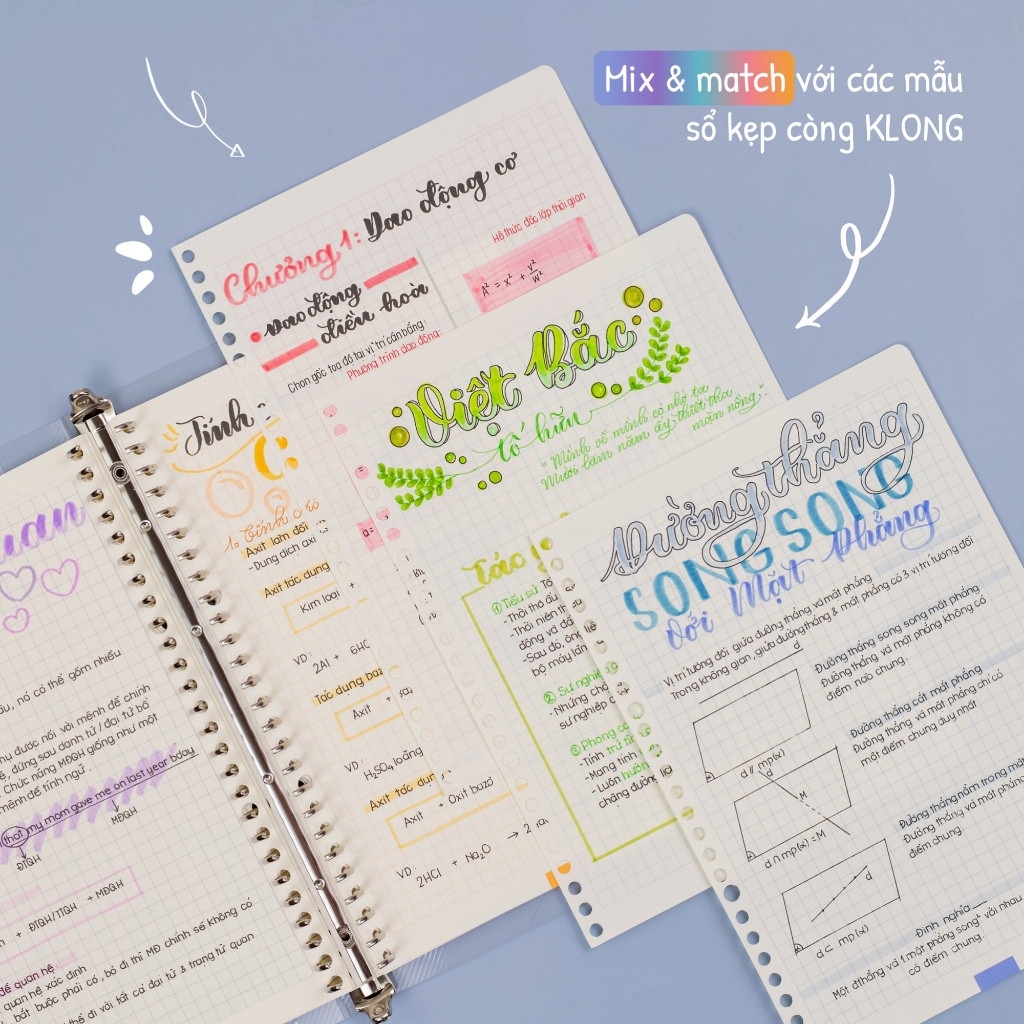 Mix & match với các mẫu
sổ kẹp còng KLONG
Chương 1: Dao động cơ
Hệ thức độc lập thời gian
A² = x² + v²/w²
Dao động
điều hoà
Chọn gốc toạ độ tại vị trí cân bằng
Phương trình dao động
Việt Bắc
tố hữu
"Mình về mình có nhớ ta
Mười lăm năm ấy thiết tha
mặn nồng."
Tác
① Tiểu sử
- Thời thơ
- Thời niên
động và
- Sau đó, ông
bộ máy
② Sự nghiệp
- Những
sự nghiệp
③ Phong
- Tính trữ
- Mang tính
- Luôn
chặng đường
Đường thẳng
SONG SONG
với Mặt Phẳng
Vị trí tương đối giữa đường thẳng và mặt phẳng
Trong không gian, giữa đường thẳng & mặt phẳng có 3 vị trí tương đối
d
d // mp(α)
- Đường thẳng song song mặt phẳng
Đường thẳng và mặt phẳng không có
điểm nào chung.
d
M
d ∩ mp(α) = M
- Đường thẳng cắt mặt phẳng
Đường thẳng và mặt phẳng chỉ có
một điểm chung duy nhất
d
d ⊂ mp(α)
- Đường thẳng nằm trong mặt
Đường thẳng và mặt phẳng
điểm chung.
Định nghĩa
Một đ.thẳng và 1 mặt phẳng song² với nhau
có điểm chung.
Tính
C:
Axit làm đổi
- Dung dịch axi
Axit tác dụng
Kim loại +
VD:
2Al + 6HC
Tác dụng baz
Axit +
VD:
H₂SO₄ loãng
Axit tác dụn
Axit + Oxit bazơ
→ 2
VD:
2HCl + Na₂O
uan
nó có thể gồm nhiều
được nối với mệnh đề chính
đứng sau danh từ / đại từ bổ
Chức năng MĐQH giống như một
mệnh đề tính ngữ.
that my mom gave me on last year bday
MĐQH
ĐTQH
+ ĐTQH/TTQH + MĐQH
đề quan hệ
quan hệ xác định
bắt buộc phải có, bỏ đi thì MĐ chính sẽ không có
thể đi với tất cả đại từ & trạng từ quan